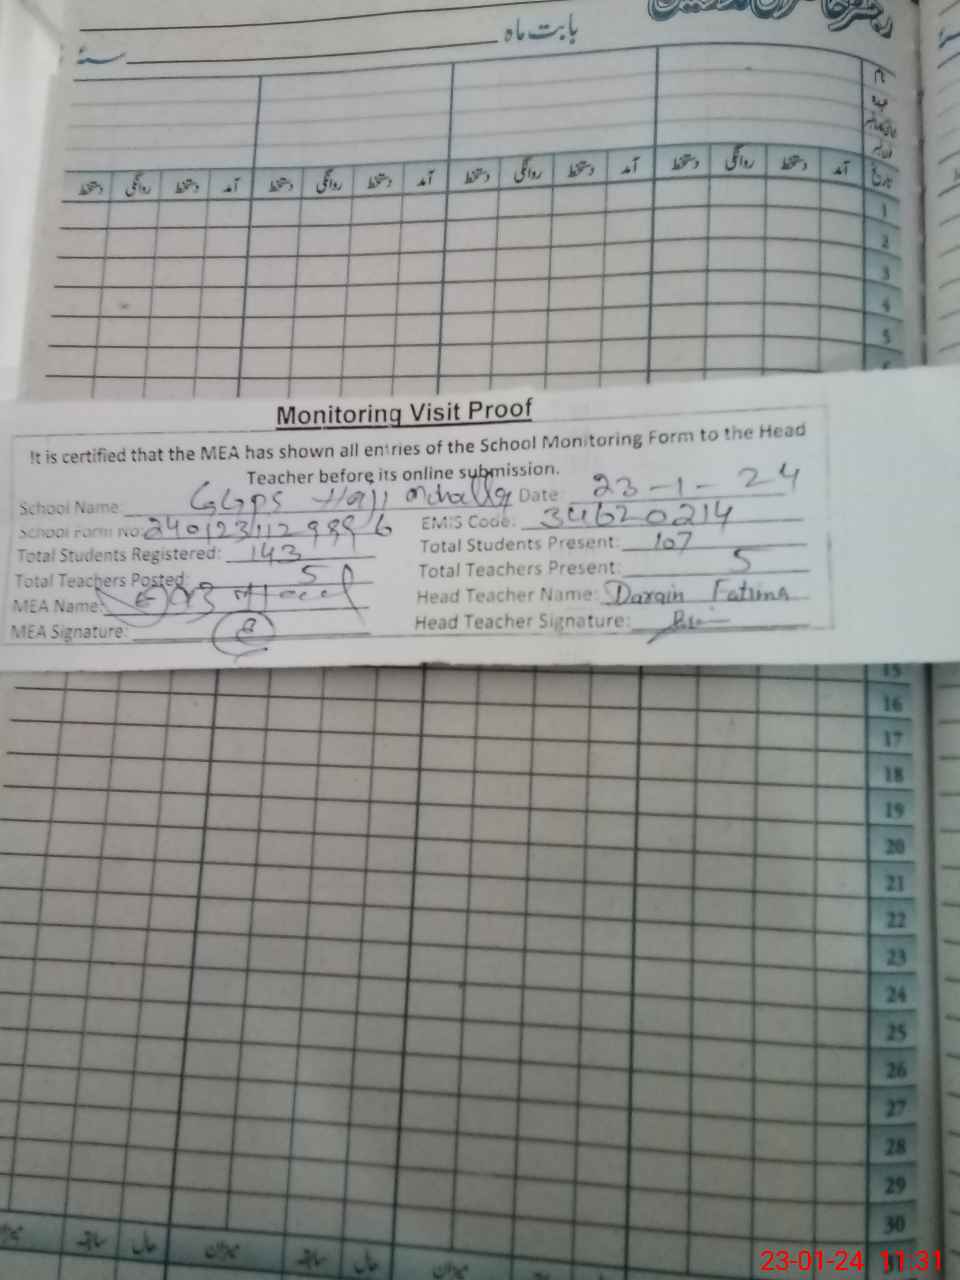 بابت ماہ
سنہ
نام
عہدہ
تاریخ آمد دستخط روانگی دستخط آمد دستخط روانگی دستخط آمد دستخط روانگی دستخط آمد دستخط روانگی دستخط
1
2
3
4
5
Monitoring Visit Proof
It is certified that the MEA has shown all entries of the School Monitoring Form to the Head
Teacher before its online submission.
School Name: GGPS Haji Date: 23-1-24
School Form No: EMIS Code: 34620214
Total Students Registered: 143 Total Students Present: 107
Total Teachers Posted: 5 Total Teachers Present: 5
MEA Name: Head Teacher Name: Fatima
MEA Signature: Head Teacher Signature:
15
16
17
18
19
20
21
22
23
24
25
26
27
28
29
30
میزان حال سابقہ میزان حال سابقہ
23-01-24 11:31